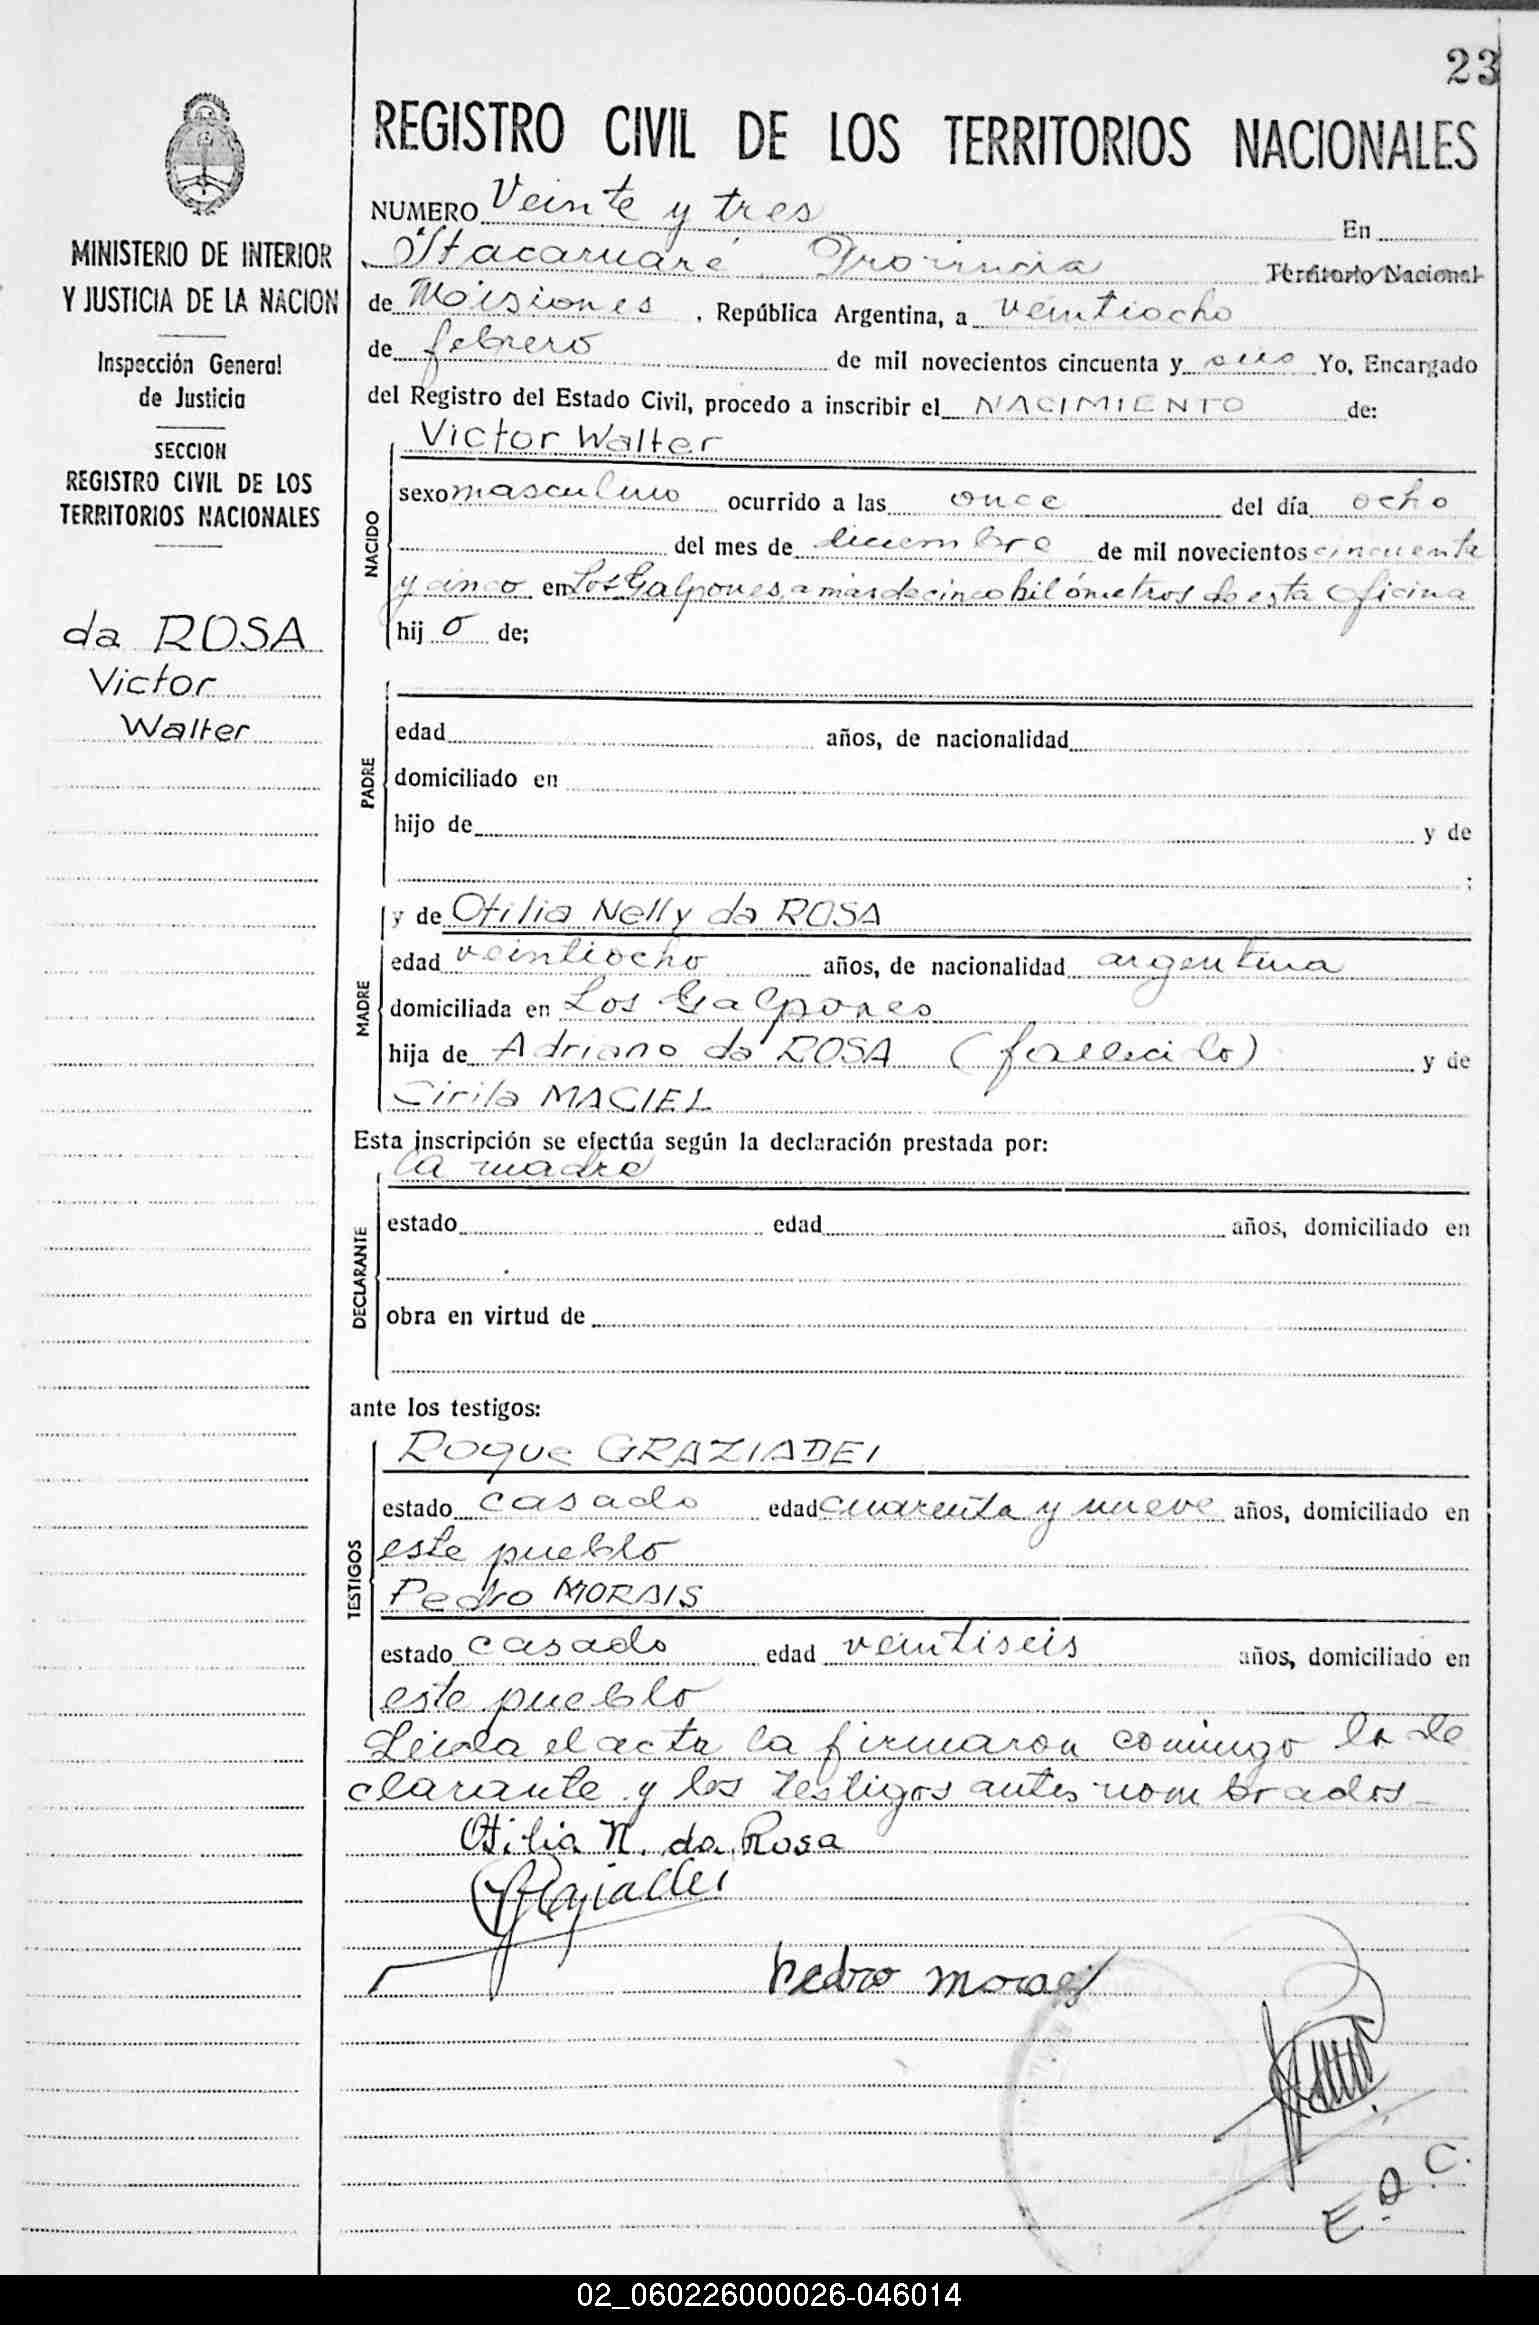 23
REGISTRO CIVIL DE LOS TERRITORIOS NACIONALES
MINISTERIO DE INTERIOR
Y JUSTICIA DE LA NACION
Inspección General
de Justicia
SECCION
REGISTRO CIVIL DE LOS
TERRITORIOS NACIONALES
da ROSA
Victor
Walter
NUMERO Veinte y tres En
Itacaruaré Provincia Territorio Nacional
de Misiones, República Argentina, a veintiocho
de febrero de mil novecientos cincuenta y seis Yo, Encargado
del Registro del Estado Civil, procedo a inscribir el NACIMIENTO de:
NACIDO
Victor Walter
sexo masculino ocurrido a las once del día ocho
del mes de diciembre de mil novecientos cincuenta
y cinco en Los Galpones, a mas de cinco kilómetros de esta Oficina
hij o de;
PADRE
edad años, de nacionalidad
domiciliado en
hijo de y de
;
MADRE
y de Otilia Nelly da ROSA
edad veintiocho años, de nacionalidad argentina
domiciliada en Los Galpones
hija de Adriano da ROSA (fallecido) y de
Cirila MACIEL
Esta inscripción se efectúa según la declaración prestada por:
DECLARANTE
la madre
estado edad años, domiciliado en
obra en virtud de
ante los testigos:
TESTIGOS
Roque GRAZIADEI
estado casado edad cuarenta y nueve años, domiciliado en
este pueblo
Pedro MORAIS
estado casado edad veintiseis años, domiciliado en
este pueblo
Leida el acta la firmaron conmigo la de
clarante y los testigos antes nombrados-
Otilia N. da Rosa
Pedro Moraes
E. R. C.
02_060226000026-046014